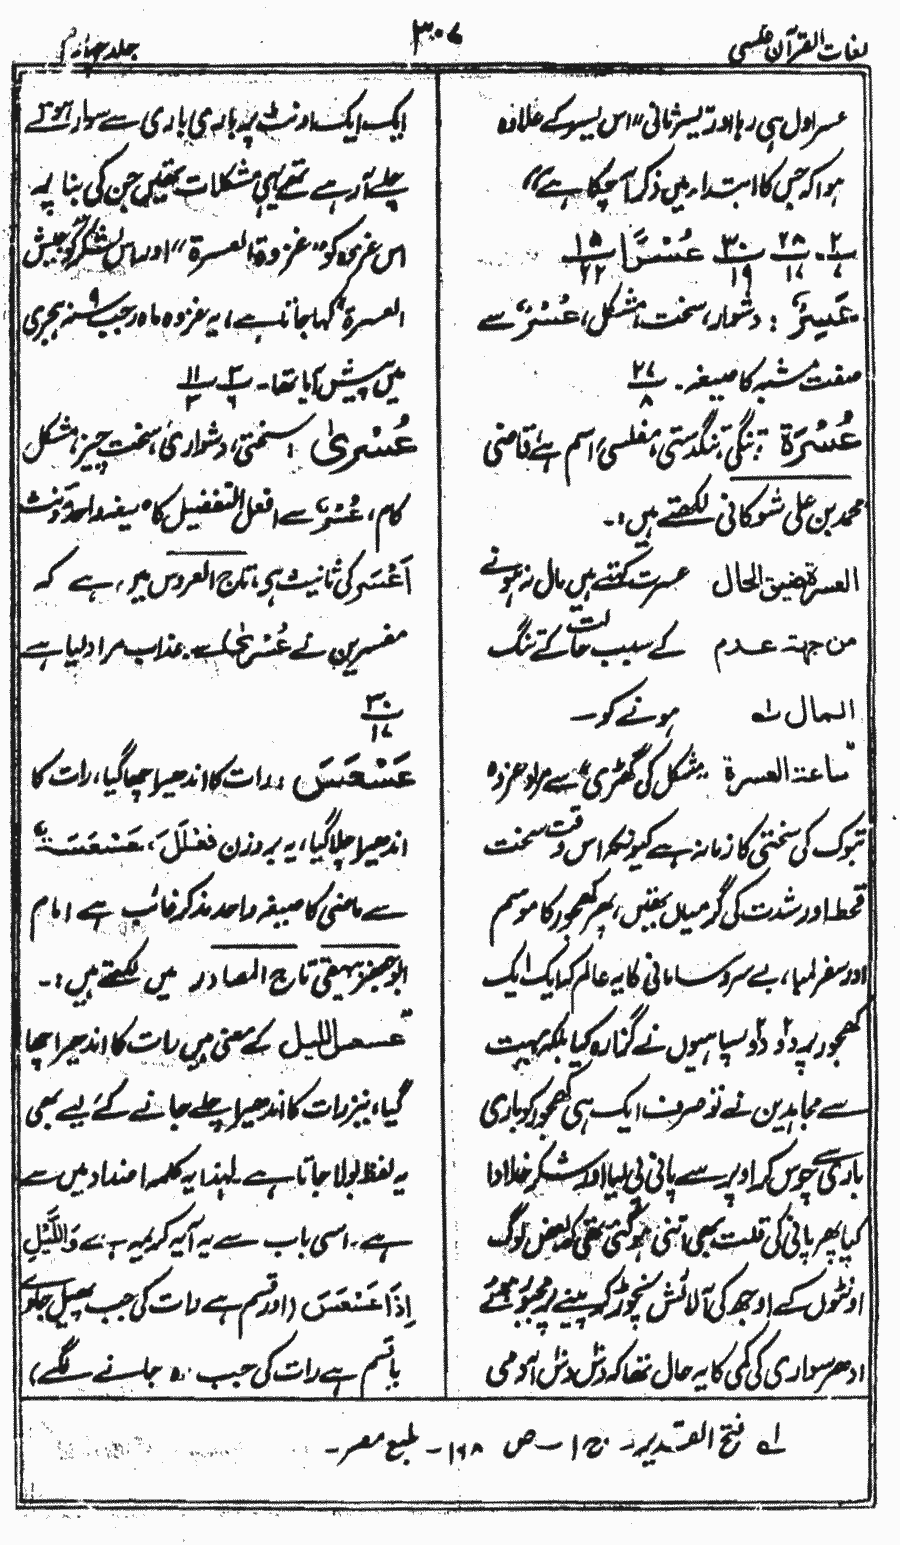 لغات القرآن عکسی
۳۰۷
جلد چہارم
عسر اول ہی رہا اور یسر ثانی" اس یسر کے علاوہ
ہوا کہ جس کا ابتداء میں ذکر آ چکا ہے)"
۲/۷۔ ۲۸/۱۷ ۳۰/۱۹ عُسْرًا ۱۵/۲۲
عَسِیْرٌ: دشوار، سخت، مشکل، عُسْرٌ سے
صفت مشبہ کا صیغہ۔ ۲۷/۸
عُسْرَةٌ: تنگی، تنگدستی، مفلسی، اسم ہے قاضی
محمد بن علی شوکانی لکھتے ہیں:۔
العسرة ضیق الحال عسرت کہتے ہیں مال نہ ہونے
من جھة عدم کے سبب حالت کے تنگ
المال لہ ہونے کو۔
"ساعة العسرة" مشکل کی گھڑی" سے مراد غزوہ
تبوک کی سختی کا زمانہ ہے کیونکہ اس وقت سخت
قحط اور شدت کی گرمیاں تھیں، پھر کھجور کا موسم
اور سفر لمبا، بے سروسامانی کا یہ عالم کہ ایک ایک
کھجور پر دو دو سپاہیوں نے گزارہ کیا بلکہ بہت
سے مجاہدین نے تو صرف ایک ہی کھجور کو باری
باری سے چوس کر اوپر سے پانی پی لیا اور شکر خدا ادا
کیا پھر پانی کی قلت بھی اتنی ہو گئی تھی کہ بعض لوگ
اونٹوں کے اوجھ کی آلائش نچوڑ کر پینے پر مجبور ہوئے
ادھر سواری کی کمی کا یہ حال تھا کہ دس دس آدمی
ایک ایک اونٹ پر باری باری سے سوار ہوتے
چلے آ رہے تھے یہی مشکلات تھیں جن کی بنا پر
اس غزوہ کو "غزوة العسرة" اور اس لشکر کو جیش
العسرة کہا جاتا ہے، یہ غزوہ ماہ رجب سنہ ۹ ہجری
میں پیش آیا تھا۔ ۲/۶ ۱۱/۳
عُسْرٰی: سختی، دشواری، سخت چیز، مشکل
کام، عُسْرٌ سے افعل التفضیل کا صیغہ واحد مؤنث
اَعْسَر کی تانیث ہے، تاج العروس میں ہے کہ
مفسرین نے عُسْرٰی سے عذاب مراد لیا ہے
۳۰/۱۷
عَسْعَسَ: رات کا اندھیرا چھا گیا، رات کا
اندھیرا چلا گیا، یہ بروزن فَعْلَلَ، عَسْعَسَةٌ
سے ماضی کا صیغہ واحد مذکر غائب ہے امام
ابو جعفر بیہقی تاج المصادر میں لکھتے ہیں:۔
"عسعس اللیل کے معنی ہیں رات کا اندھیرا چھا
گیا، نیز رات کا اندھیرا چلے جانے کے لیے بھی
یہ لفظ بولا جاتا ہے۔ لہذا یہ کلمہ اضداد میں سے
ہے۔ اسی باب سے یہ آیہ کریمہ ہے وَاللَّيْلِ
اِذَا عَسْعَسَ (اور قسم ہے رات کی جب پھیل جاوے
یا قسم ہے رات کی جب وہ جانے لگے)
لہ فتح القدیر۔ ج ۱۔ ص ۱۶۸۔ طبع مصر۔